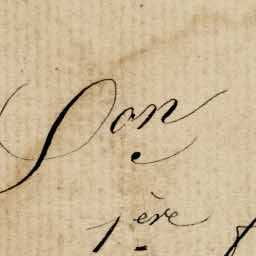 Don
1ère